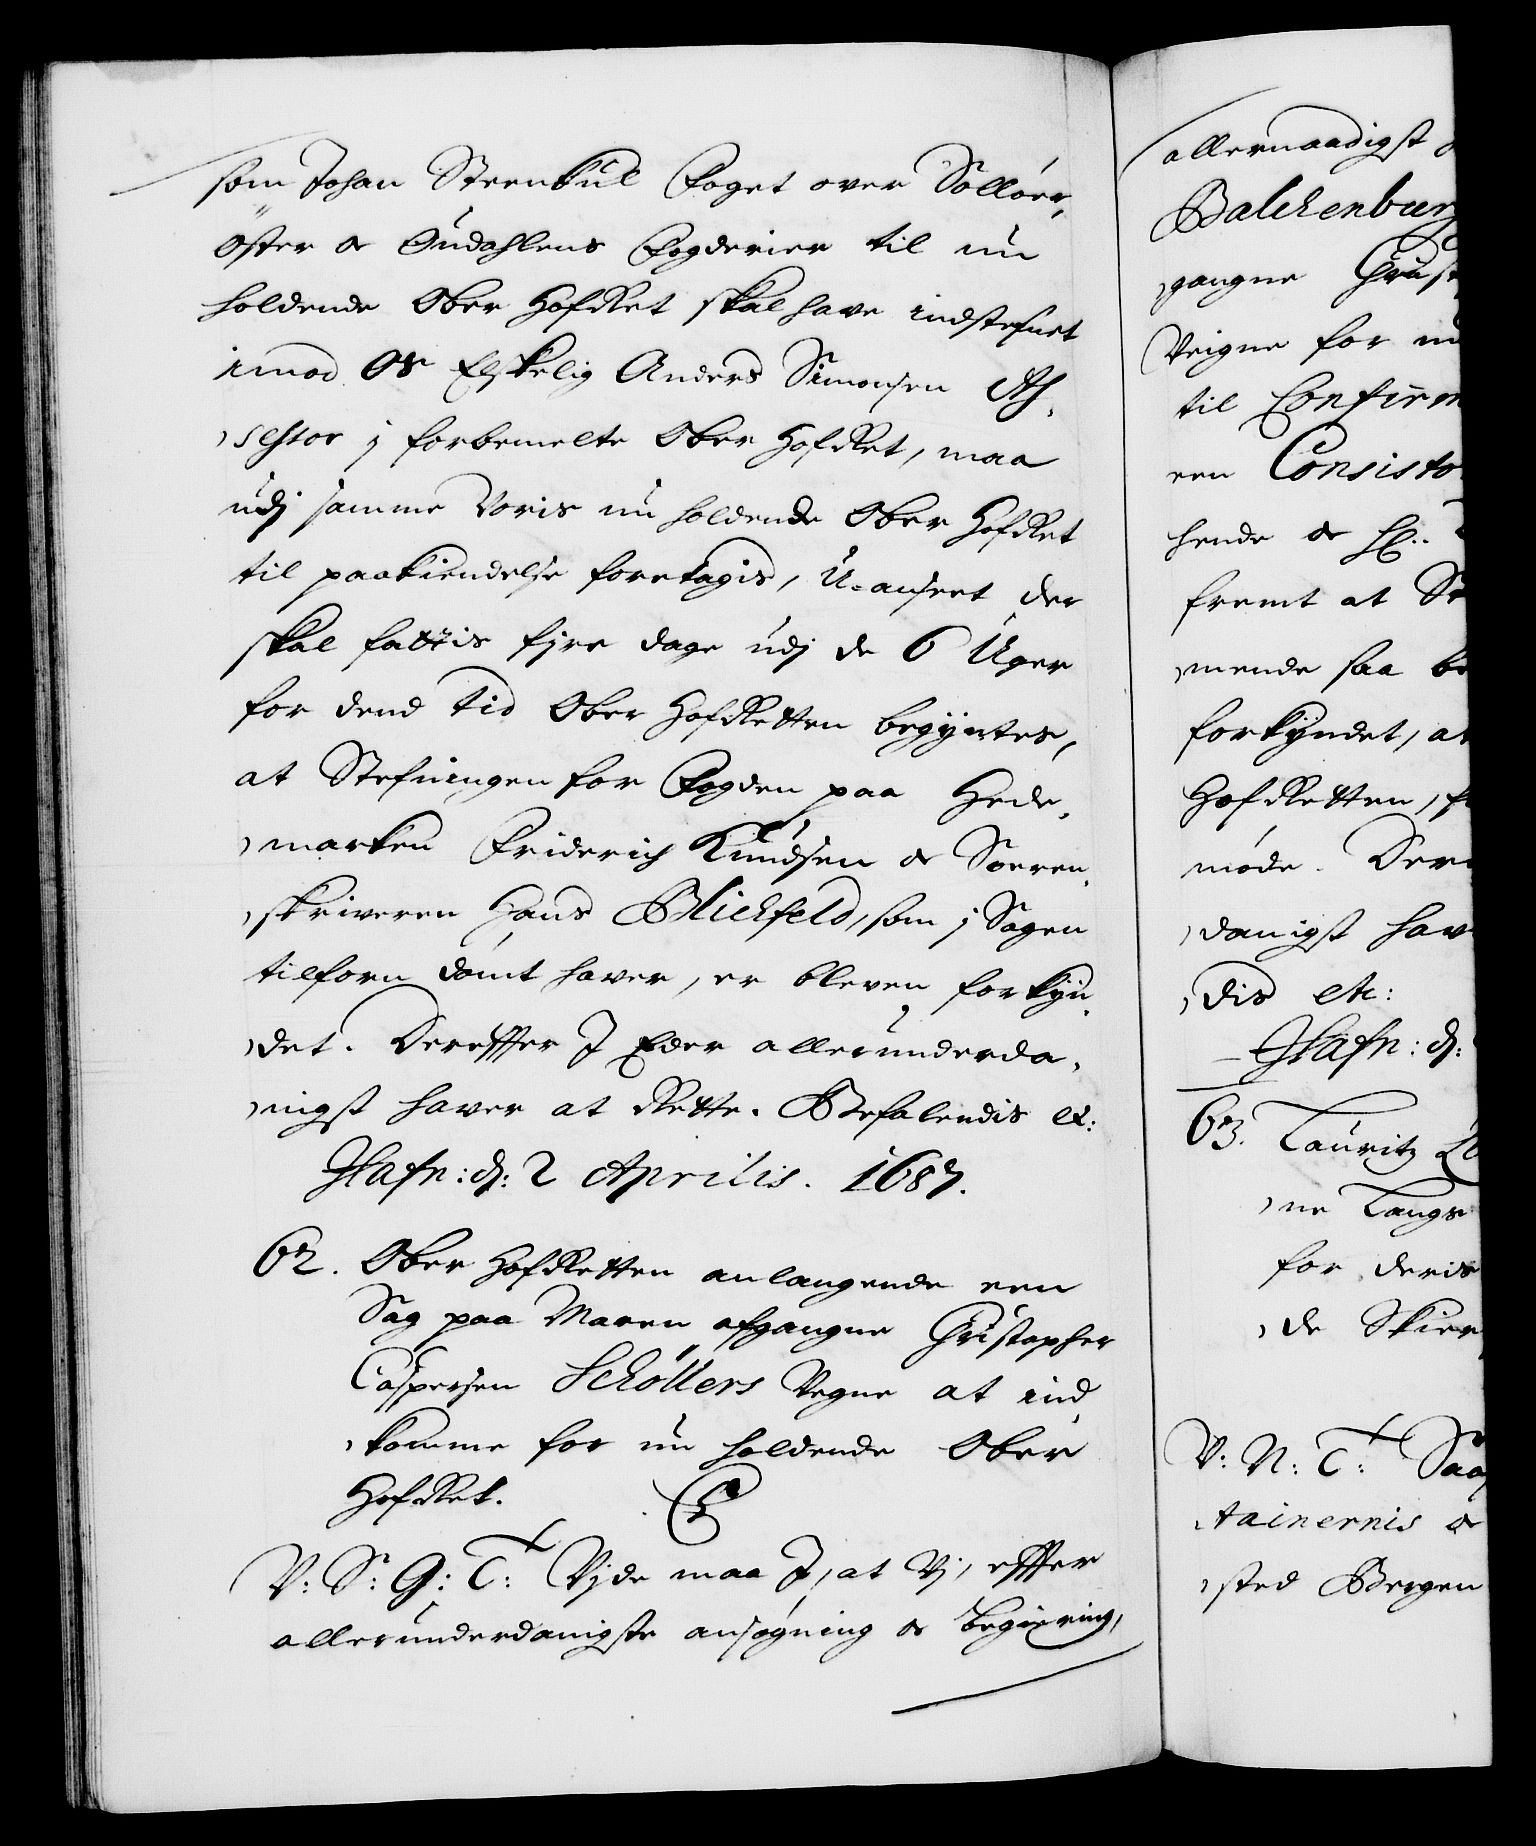 som Johan Steenkul Foget over Solløer,
Øster oc Oudahlens Fogderier til nu
holdende Ober HofRet skal have indstefnet
imod Os Elskelig Anders Simonsen As-
sessor j forbemelte Ober HofRet, maa
udj samme Voris nu holdende Ober HofRet
til paakiendelse foretagis, U-anseet der
skal fattis fire dage udj de 6 Uger
for dend tid Ober HofRetten begyntes,
at Stefningen for Fogden paa Hede-
marken Friderich Knudsen oc Soeren-
skriveren Hans Blichfeld, som j Sagen
tilforn dømt haver, er bleven forkyn-
det. Dereffter J Eder allerunderda-
nigst haver at Rette. Befalendis etc:
Hafn: d: 2 Aprilis. 1687.
62. Ober HofRetten anlangende een
Sag paa Maren afgangne Christopher
Caspersen Schøllers Vegne at ind
komme for nu holdende Ober
HofRet.
V: S: G: T: Vjde maa J, at Vj, effter
allerunderdanigste ansøgning oc begiering,
allernaadigst
Balchenburg
gangne Christ
Veigne for nu
til Confirm
een Consisto
hende oc Hr:
fremt at St
mende saa be
forkyndet, at
HofRetten, f
møde. Der
danigst hav
dis etc:
Hafn: d:
63. Lauritz
ne Langs
for deris
de Skier
V: N: T: Saa
tainernis oc
sted Bergen